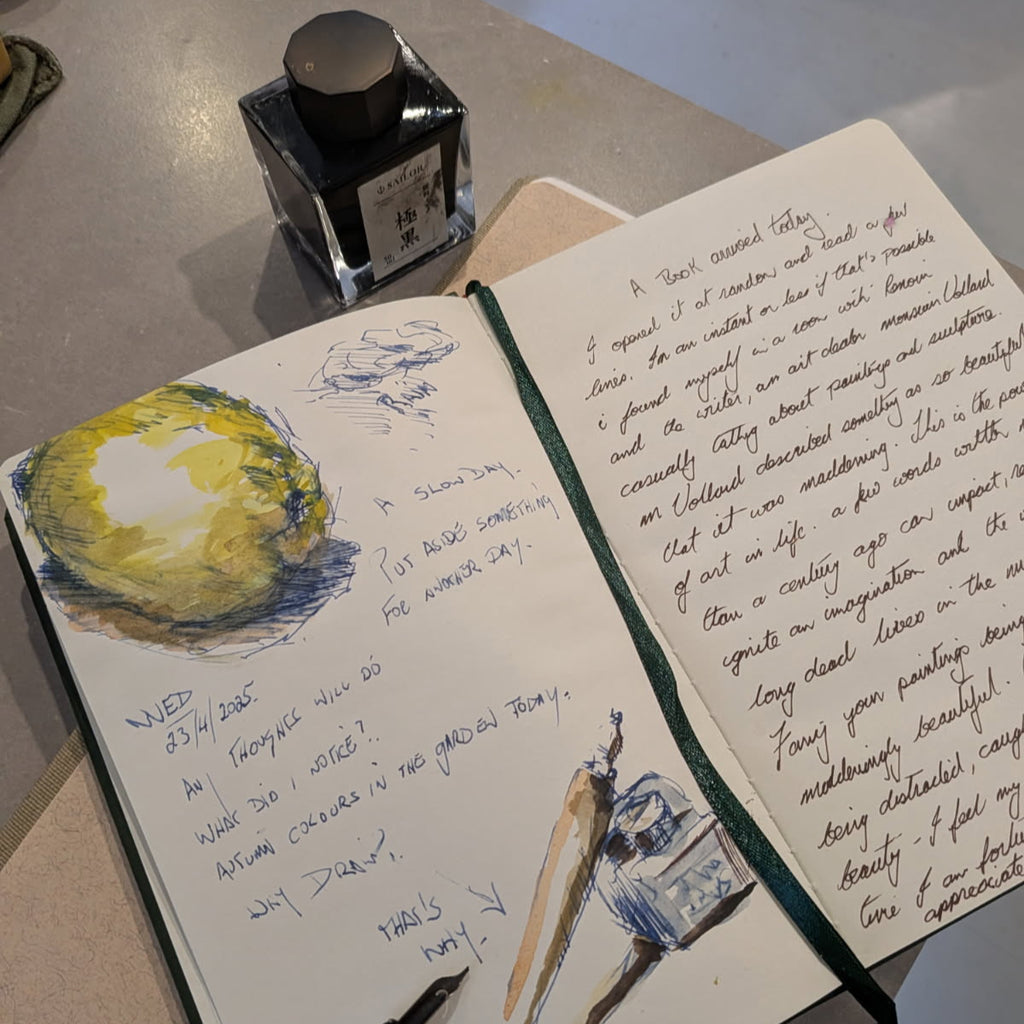 SAILOR
極黒
A SLOW DAY.
PUT ASIDE SOMETHING
FOR ANOTHER DAY.
WED
23/4/2025.
ANY THOUGHTS WILL DO
WHAT DID I NOTICE?
AUTUMN COLOURS IN THE GARDEN TODAY.
WHY DRAW.
THAT'S
WHY.
A Book arrived today.
I opened it at random and read a few
lines. In an instant or less if that's possible
i found myself in a room with Renoir
and the writer, an art dealer monsieur Vollard
casually talking about paintings and sculpture.
m Vollard described something as so beautiful
that it was maddening. This is the
of art in life. a few words written
than a century ago can impact,
ignite an imagination and the
long dead lives in the
Fancy your paintings being
maddeningly beautiful.
being distracted, caught
beauty - I feel my
time I am
appreciate